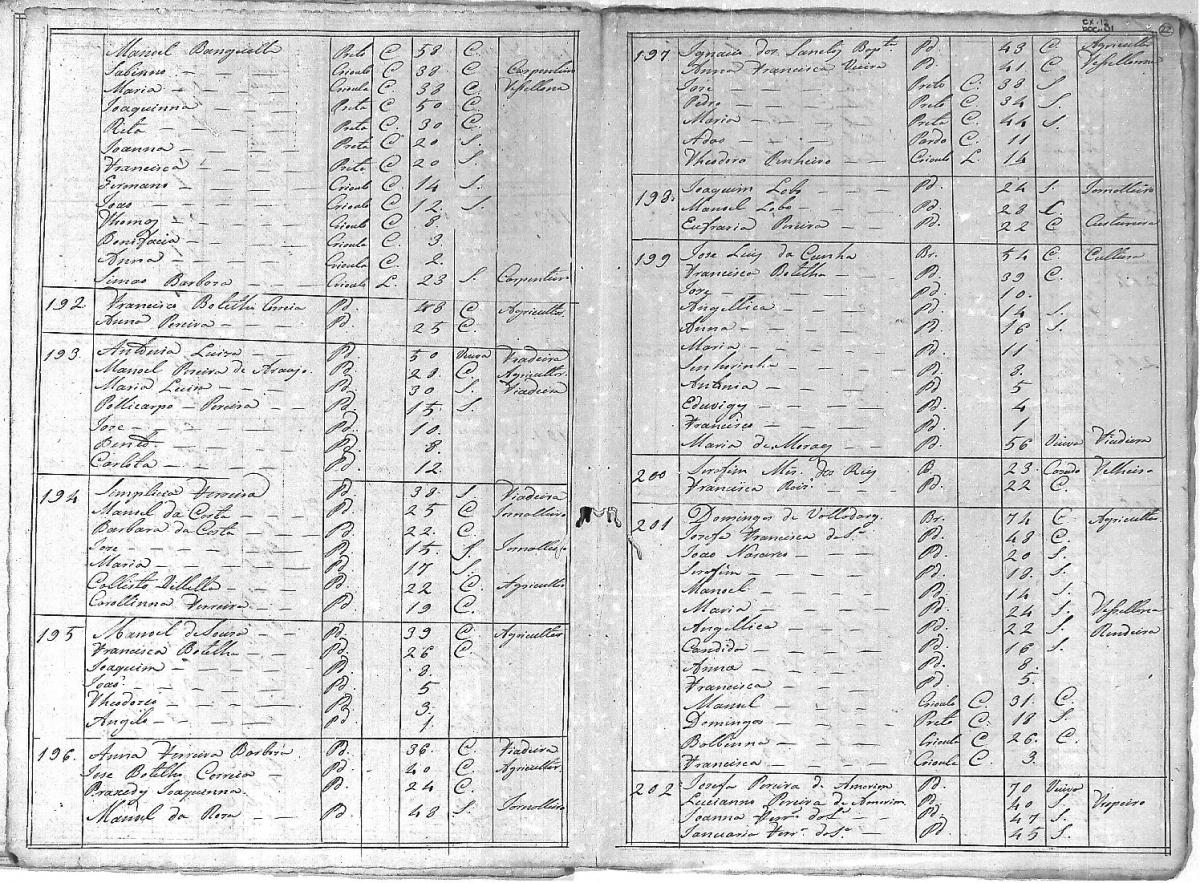 Manoel Banguella Preto C 58 C.
Sabinno Crioulo C. 38 C. Carpenteiro
Maria Crioula C. 38 C. Vesselleira
Joaquinna Preta C. 50 C.
Rita Preta C. 30 C.
Joanna Preta C 20 S.
Francisca Preta C 20 S.
Germano Crioulo C 14 S.
João Crioulo C. 12. S.
Thomaz Crioulo C. 8.
Bonifacia Crioula C. 3.
Anna Crioula C. 2.
Simão Barboza Crioulo L. 23 S. Carpenteiro
192 Francisco Botelho Correia Pd. 48 C Agricultor
Anna Pereira Pd. 25 C.
193 Antonia Luiza Pd. 50 Viuva Fiadeira
Manoel Pereira de Araujo Pd. 28 C. Agricultor
Maria Luiza Pd. 30 S. Fiadeira
Pollicarpo Pereira Pd. 15 S.
Jose Pd. 10.
Bento Pd. 8.
Carlota Pd. 12
194 Simplicia Ferreira Pd. 38. S. Fiadeira
Manuel da Costa Pd. 25 C Jornalleiro
Barbara da Costa Pd. 22 C.
Jose Pd. 15. S. Jornalleiro
Maria Pd. 17 S.
Collesto Pd. 22 C. Agricultor
Carollinna Ferreira Pd. 19 C.
195 Manoel de Souza Pd. 39 C. Agricultor
Francisca Botelha Pd. 26 C.
Joaquim Pd. 8.
João Pd. 5
Theodoro Pd. 3.
Angelo Pd. 1.
196. Anna Ferreira Barboza Pd. 36. C. Fiadeira
Jose Botelho Correia Pd. 40 C. Agricultor
Praxedy Joaquinna Pd. 24 C.
Manoel da Roza Pd. 48 S. Jornalleiro
CX. 12
DOC. 01
22
197 Ignacio dos Sanctos Bapta Pd. 43 C. Agricultor
Anna Francisca Vieira Pd. 41 C Vesselleira
Jose Preto C. 38 S
Pedro Preto C. 34 S.
Maria Preta C. 44 S.
Adão Pardo C. 11
Theodoro Pinheiro Crioulo L. 14
198. Joaquim Lobo Pd. 24 S. Jornalleiro
Manoel Lobo Pd. 28 C.
Eufrazia Pereira Pd. 22 C Custureira
199 Jose Luiz da Cunha Br. 54 C. Cultura
Francisca Botelha Pd. 39 C.
Jose Pd. 10.
Angellica Pd. 14 S.
Anna Pd. 16 S.
Maria Pd. 11
Senhorinha Pd. 8.
Antonia Pd. 5
Eduvigy Pd. 4
Francisco Pd. 1
Maria de Moraes Pd. 56 Viuva Fiadeira
200 Serafim Miz. dos Reis B. 23. Cazado Velheiro
Francisca Roiz. Pd. 22 C.
201 Domingos de Volladarez Br. 74 C Agricultor
Josefa Francisca da Sa. Pd. 48 C.
João Nazareo Pd. 20 S.
Serafim Pd. 18. S.
Manoel Pd. 14 S.
Maria Pd. 24 S. Vesselleira
Angellica Pd. 22 S. Rendeira
Candida Pd. 16 S.
Anna Pd. 8.
Francisca Pd. 5
Manuel Crioulo C. 31 C.
Domingos Preto C. 18 S.
Balbinna Crioula C. 26. C.
Francisca Crioula C 3.
202 Josefa Pereira d. Amorim Pd. 70 Viuva
Lucianno Pereira de Amorim Pd. 40 S. Vaqueiro
Joanna Ferra. do Sa. Pd. 47 S.
Januaria Ferra. do Sa. Pd. 45 S.